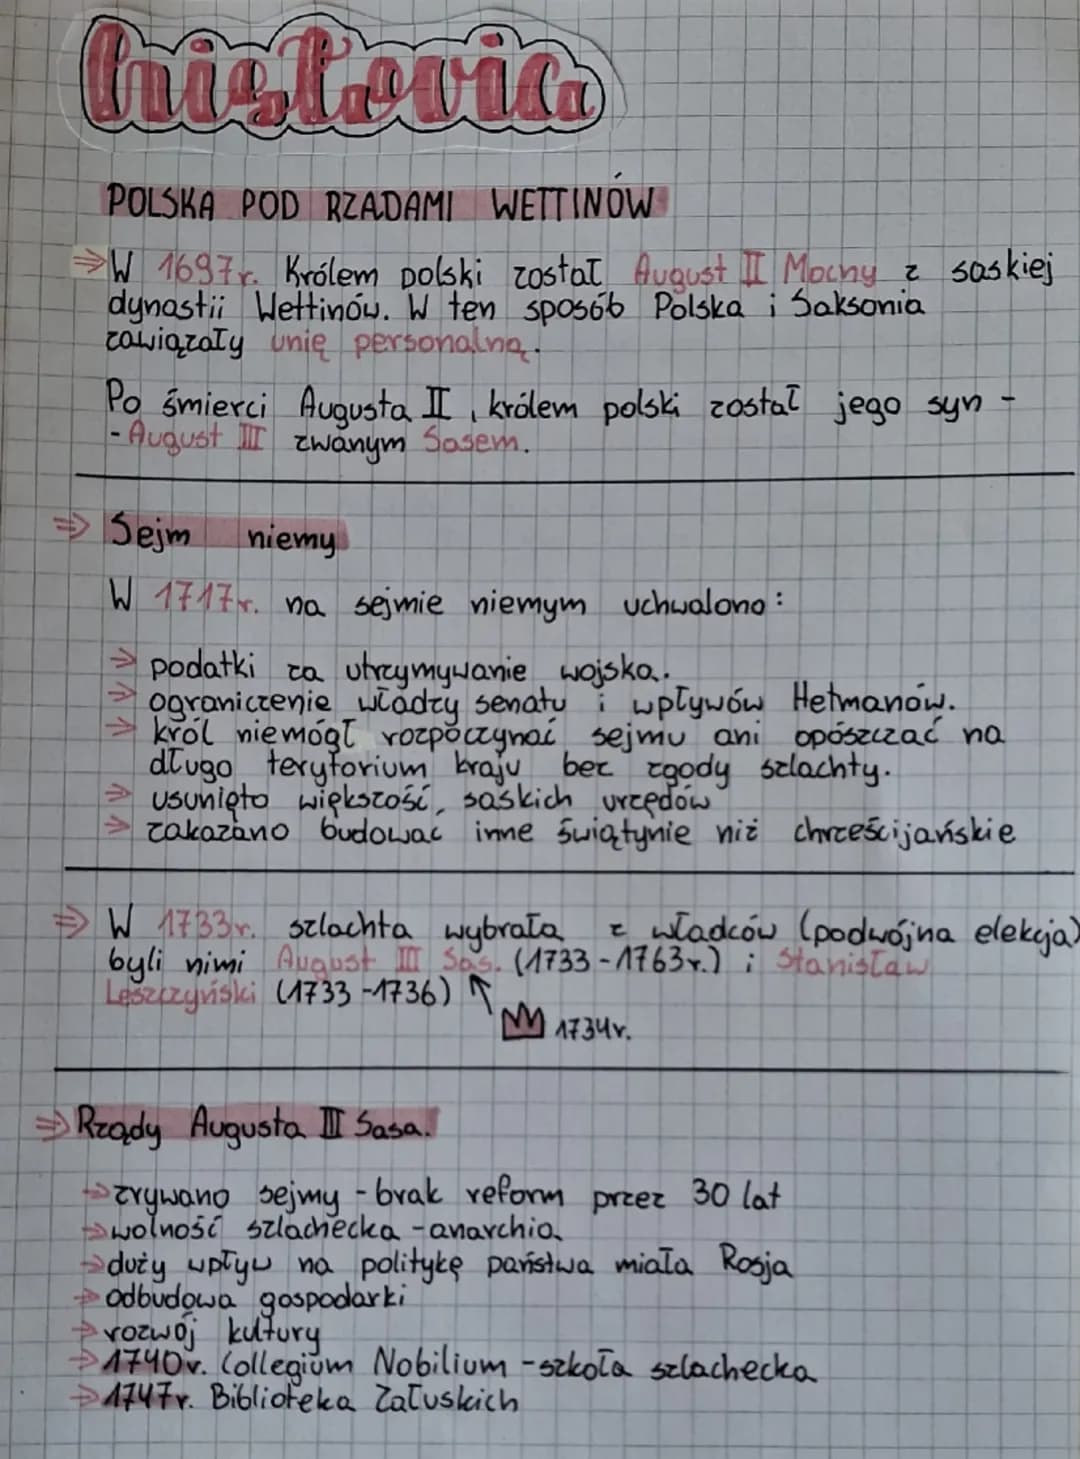 historia
POLSKA POD RZĄDAMI WETTINÓW
⇒ W 1697r. Królem polski został August II Mocny z saskiej
dynastii Wettinów. W ten sposób Polska i Saksonia
zawiązały unię personalną.
Po śmierci Augusta II, królem polski został jego syn -
- August III zwanym Sasem.
⇒ Sejm niemy
W 1717r. na sejmie niemym uchwalono:
⇒ podatki za utrzymywanie wojska.
⇒ ograniczenie władzy senatu i wpływów Hetmanów.
⇒ król niemógł rozpoczynać sejmu ani opószczać na
długo terytorium kraju bez zgody szlachty.
⇒ usunięto większość saskich urzędów
⇒ zakazano budować inne świątynie niż chrześcijańskie
⇒ W 1733r. szlachta wybrała 2 władców (podwójna elekcja)
byli nimi August III Sas. (1733-1763r.) i Stanisław
Leszczyński (1733-1736) ↑
1734r.
⇒ Rządy Augusta III Sasa.
⇒ zrywano sejmy - brak reform przez 30 lat
⇒ wolność szlachecka - anarchia
⇒ duży wpływ na politykę państwa miała Rosja
⇒ odbudowa gospodarki
⇒ rozwój kultury
⇒ 1740r. Collegium Nobilium - szkoła szlachecka
⇒ 1747r. Biblioteka Załuskich